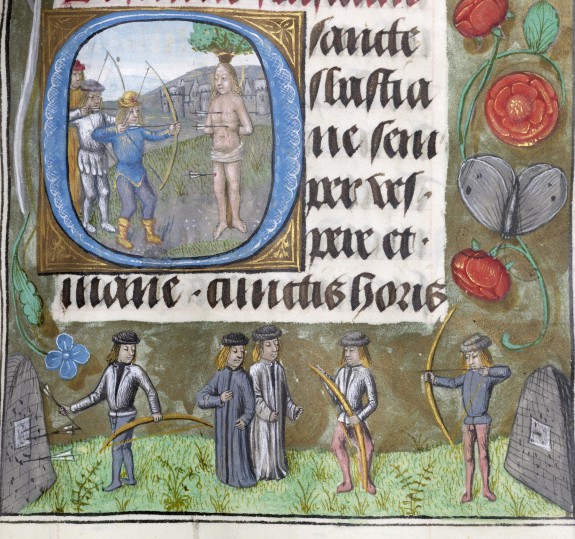 O sancte
sebastia
ne sem
per ves
pere et ·
mane · cunctis horis